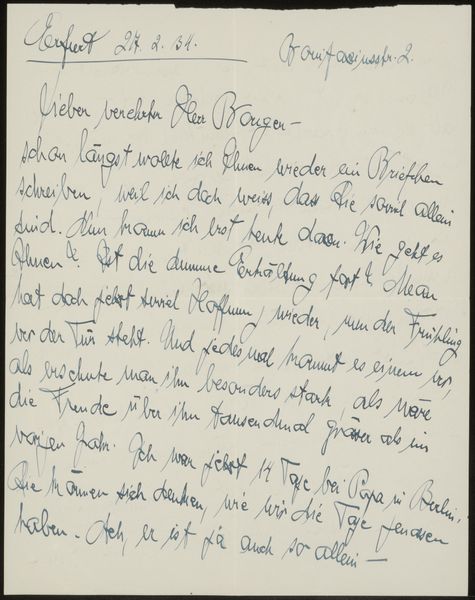 Erfurt 27.2.31. Bonifaciusstr. 2.
Lieber verehrter Herr Bongen –
schon längst wollte ich Ihnen wieder ein Briefchen
schreiben, weil ich doch weiss, dass Sie soviel allein
sind. Nun komm ich erst heute dazu. Wie geht es
Ihnen? Ist die dumme Erkältung fort? Man
hat doch jetzt soviel Hoffnung, wieder, nun der Frühling
vor der Tür steht. Und jedesmal kommt es einem vor,
als ersehnte man ihn besonders stark, als wäre
die Freude über ihn tausendmal grösser als im
vorigen Jahr. Ich war jetzt 14 Tage bei Papa in Berlin,
Sie können sich denken, wie wir die Tage genossen
haben. Ach, er ist ja auch so allein –